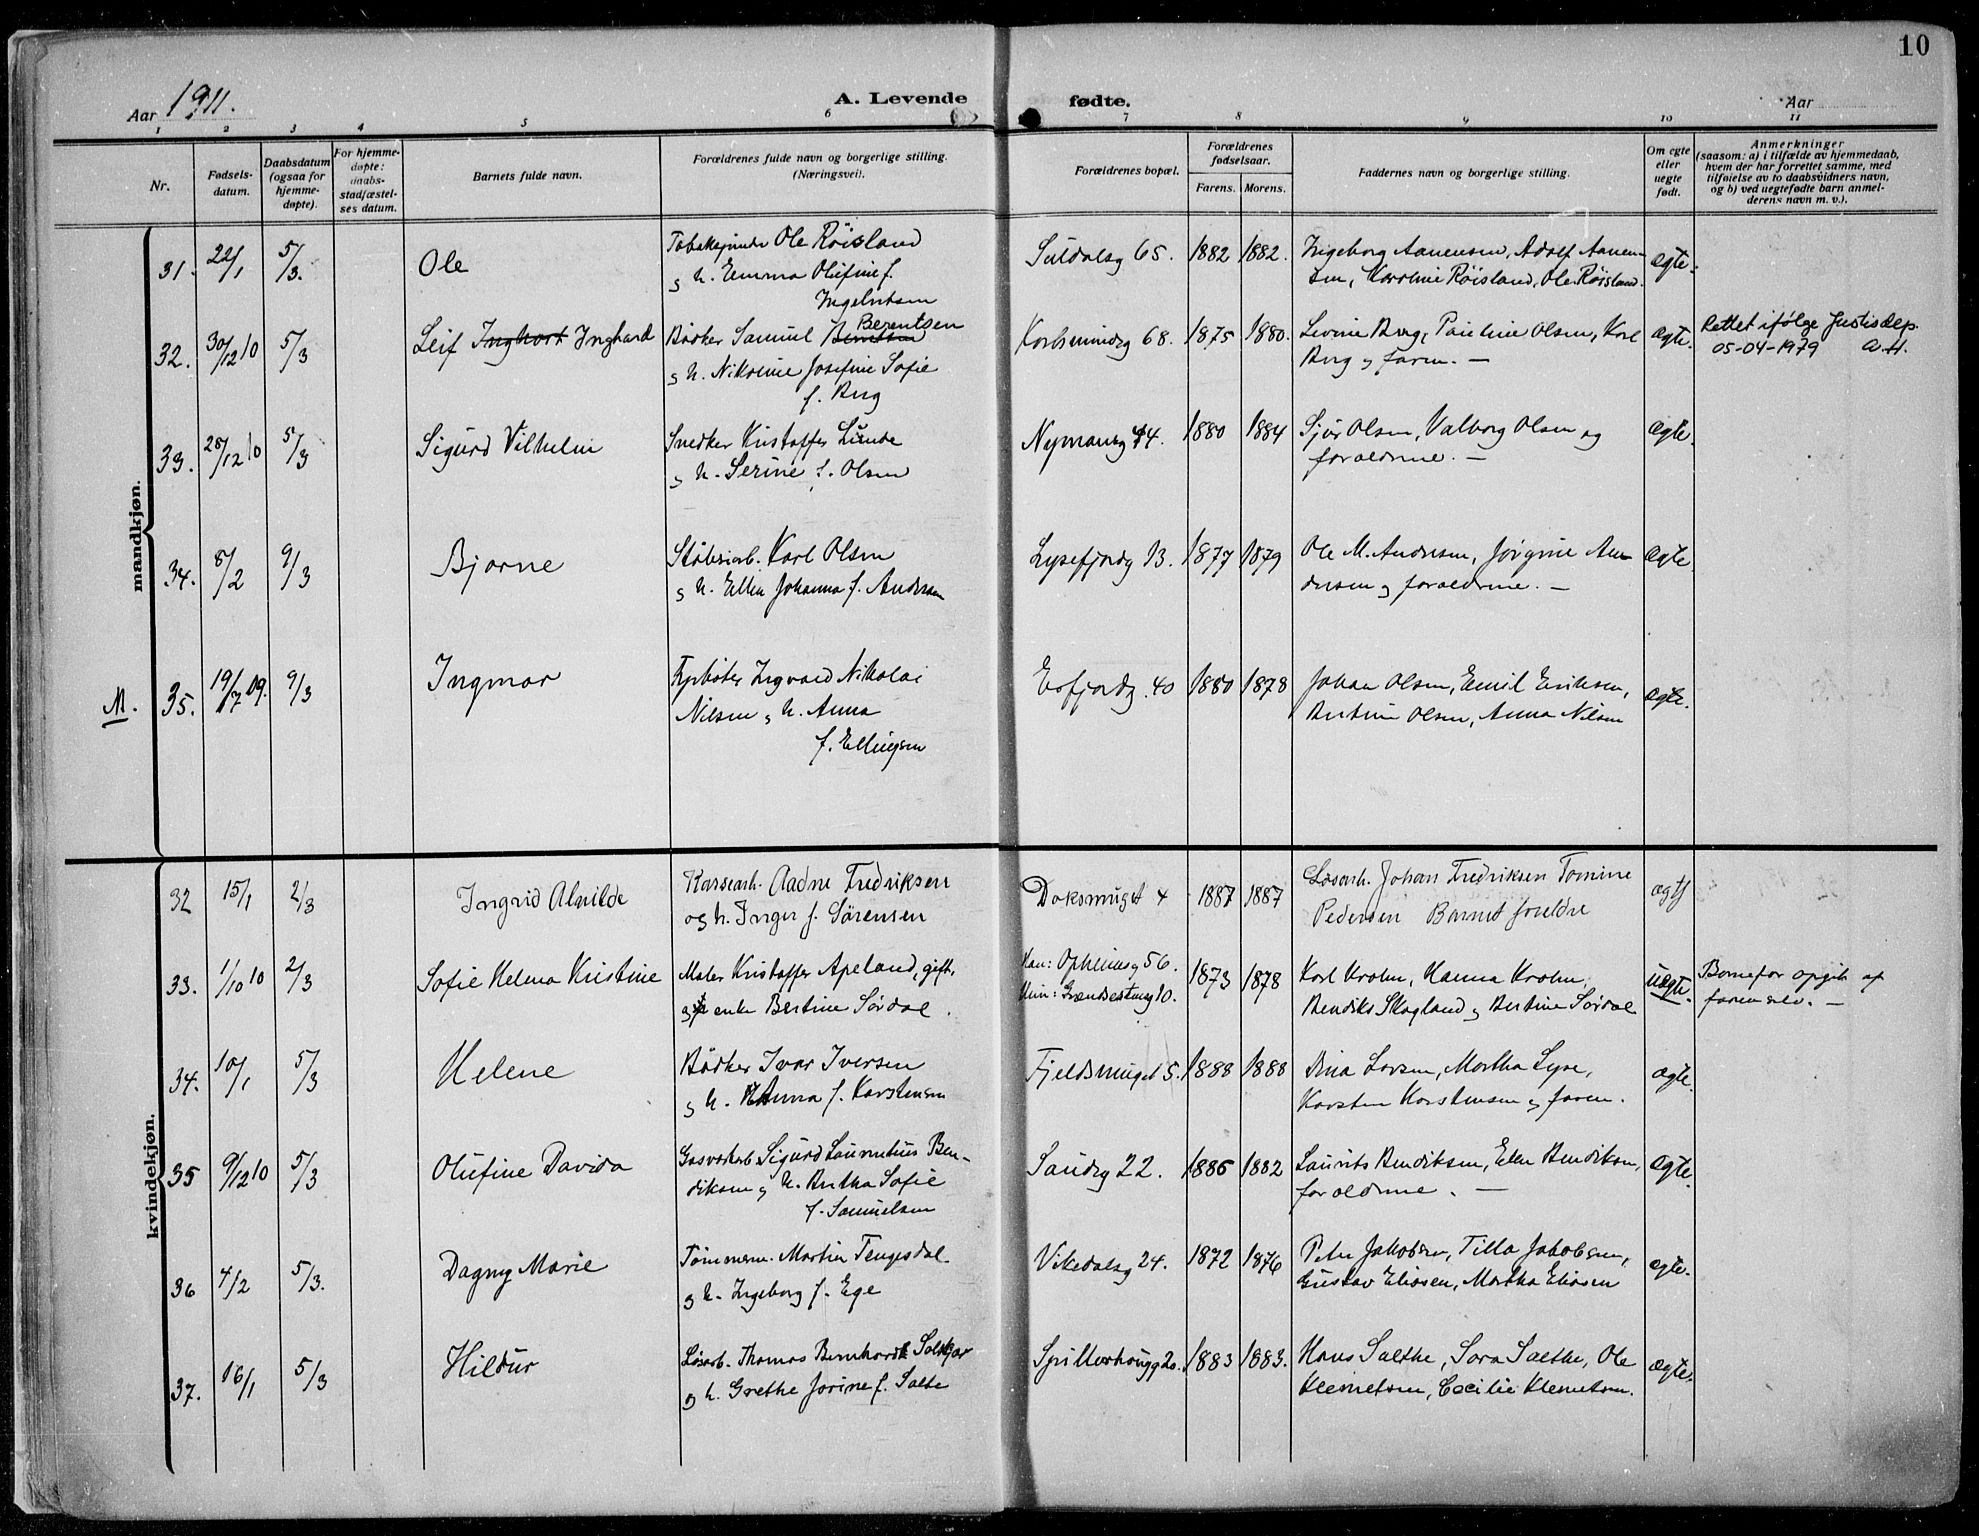 10
Aar 1911.
A. Levende fødte.
Aar
1 2 3 4 5 6 7 8 9 10 11
Nr.
Fødsels-
datum.
Daabsdatum
(ogsaa for
hjemme-
døpte).
For hjemme-
døpte:
daabs-
stadfæstel-
ses datum.
Barnets fulde navn.
Forældrenes fulde navn og borgerlige stilling.
(Næringsvei).
Forældrenes bopæl.
Forældrenes
fødselsaar.
Farens. Morens.
Faddernes navn og borgerlige stilling.
Om egte
eller
uegte
født.
Anmerkninger
(saasom: a) i tilfælde av hjemmedaab,
hvem der har forrettet samme, med
tilføielse av to daabsvidners navn,
og b) ved uegtefødte barn anmel-
derens navn m. v.).
mandkjøn.
31. 22/1 5/3. Ole
Ole Röisland
og h. Emma Olufine f.
Ingebretsen
Suldalsg 65. 1882 1882.
Ingeborg Aanensen, Adolf Aanen-
sen, Karoline Röisland, Ole Röisland.
ægte.
32. 30/12 10 5/3 Leif Inghart Inghard
Bødker Samuel Berntsen Berentsen
og h. Nikoline Josefine Sofie
f. Berg
68. 1875 1880.
Levine Berg, Pauline Olsen, Karl
Berg og faren. —
ægte.
Rettet ifølge Justisdep.
05-04-1979 A.H.
33. 28/12 10 5/3 Sigurd Vilhelm
Snedker Kristoffer Lunde
og h. Serine f. Olsen
Nymansg 44. 1880 1884
Sjur Olsen, Valborg Olsen og
forældrene. —
ægte.
34. 8/2 9/3 Bjarne
Karl Olsen
og h. Ellen Johanna f. Andersen
Lysefjordg 13. 1877 1879
Ole M. Andersen, Jørgine An-
dersen og forældrene. —
ægte.
M. 35. 19/7 09. 9/3 Ingmar
Fyrbøter Ingvald Nikolai
Nilsen og h. Anna
f. Ellingsen
Erfjordg. 40 1880 1878
Johan Olsen, Emil Eriksen,
Bertine Olsen, Anna Nilsen
ægte.
kvindekjøn.
32 15/1 2/3 Ingrid Alvilde
Aadne Fredriksen
og h. Inger f. Sørensen
Doksmuget 4 1887 1887
Løsarb. Johan Fredriksen Tomine
Pedersen Barnets foreldre
ægte
33. 1/10 10 2/3 Sofie Helena Kristine
Maler Kristoffer Apeland, gift,
og enke Bertine Sørdal.
Han: Opheimsg 56.
Hun: 10.
1873 1878
Karl Krohn, Hanna Krohn,
Bendiks Skogland og Bertine Sørdal
uægte.
Barnefar opgit af
faren selv. —
34. 10/1 5/3 Helene
Bødker Ivar Iversen
og h. Anna f. Karstensen
Fjeldsmuget 5. 1888 1888
Dina Larsen, Martha Lyse,
Karsten Karstensen og faren.
ægte.
35 9/12 10 5/3 Olufine Davida
Gasverkarb. Sigurd Laurentius Ben-
diksen og h. Bertha Sofie
f. Samuelsen
Sandsg 22. 1885 1882
Laurits Bendiksen, Ellen Bendiksen,
forældrene. —
ægte.
36 4/2 5/3. Dagny Marie
Tömmerm. Martin Tengesdal
og h. Ingeborg f. Ege
Vikedalsg 24. 1872 1876
Peter Jakobsen, Tilla Jakobsen,
Gustav Eliasen, Martha Eliasen
ægte.
37. 16/1 5/3 Hildur
Løsarb. Thomas Bernhard
og h. Grethe Jorine f. Salte
20. 1883 1883.
Hans Salthe, Sara Salthe, Ole
Klemetsen, Cecilie Klemetsen.
ægte.